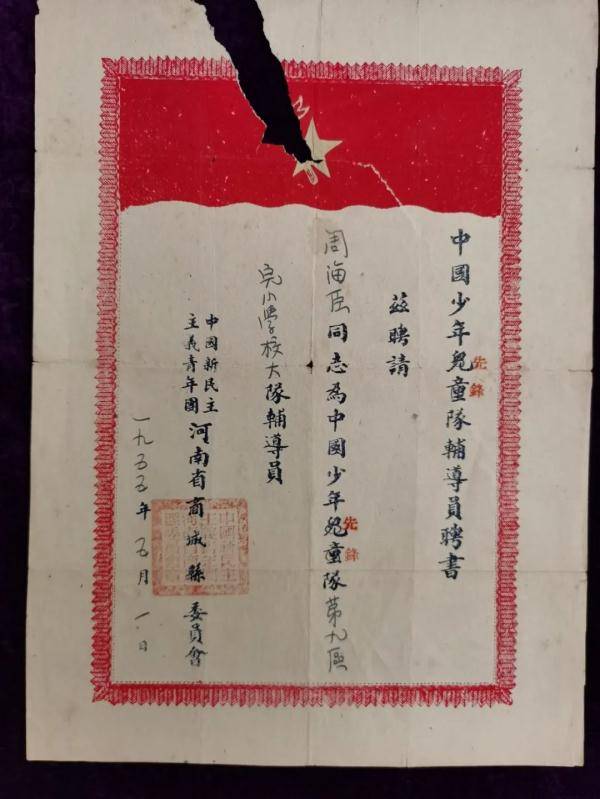 中國少年兒童隊輔導員聘書
先鋒
茲聘請
周海臣同志為中國少年兒童隊第九區
先鋒
完小學校大隊輔導員
中國新民主
主義青年團
河南省商城縣 委員會
一九五五年 五月 一日